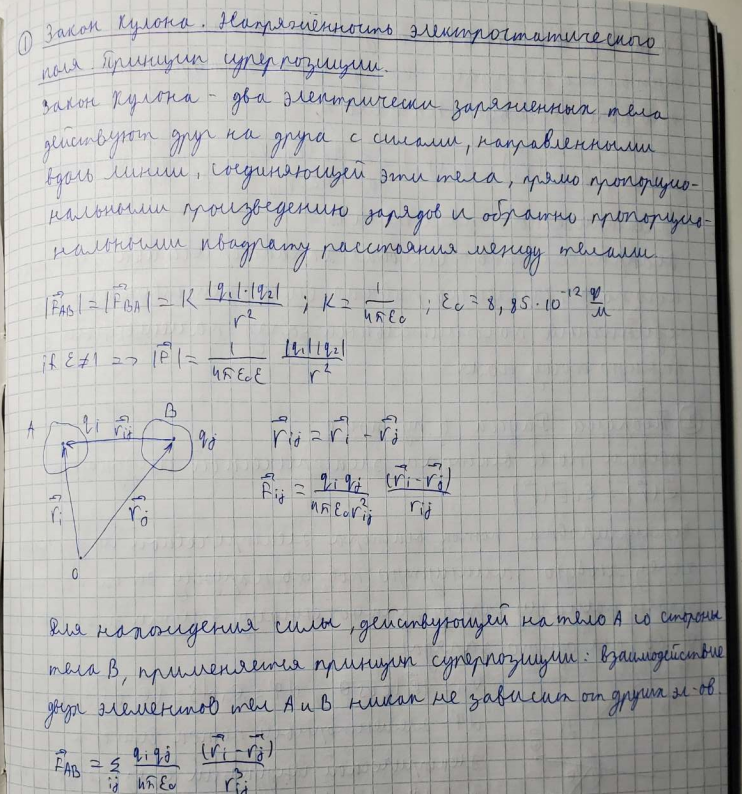 ① Закон Кулона. Напряжённость электростатического
поля Принцип суперпозиции.
Закон Кулона - два электрически заряженных тела
действуют друг на друга с силами, направленными
вдоль линии, соединяющей эти тела, прямо пропорцио-
нальными произведению зарядов и обратно пропорцио-
нальными квадрату расстояния между телами.
|F⃗_AB| = |F⃗_BA| = K |q₁|·|q₂| / r² ; K = 1 / 4πε₀ ; ε₀ = 8,85·10⁻¹² Ф/м
if ε≠1 => |F⃗| = 1 / 4πε₀ε |q₁||q₂| / r²
A q_i r⃗_ij B q_j
r⃗_i r⃗_j
O
r⃗_ij = r⃗_i - r⃗_j
F⃗_ij = q_i q_j / 4πε₀r²_ij (r⃗_i - r⃗_j) / r_ij
Для нахождения силы, действующей на тело A со стороны
тела B, применяется принцип суперпозиции: взаимодействие
двух элементов тел A и B никак не зависит от других эл-ов.
F⃗_AB = Σ_ij q_i q_j / 4πε₀ (r⃗_i - r⃗_j) / r³_ij